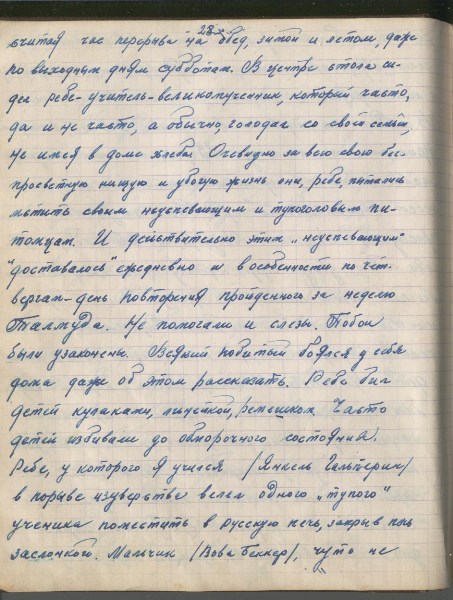 28
считая час перерыва на обед, зимой и летом, даже
по выходным дням субботам. В центре стола си-
дел ребе-учитель-великомученник, который часто,
да и не часто, а обычно, голодал со своей семьей,
не имея в доме хлеба. Очевидно за всю свою бес-
просветную нищую и убогую жизнь они, ребе, пытались
мстить своим неуспевающим и тупоголовым пи-
томцам. И действительно этим „неуспевающим"
"доставалось" ежедневно и в особенности по чет-
вергам-день повторения пройденного за неделю
Талмуда. Не помогали и слезы. Побои
были узаконены. Всякий побитый боялся у себя
дома даже об этом рассказать. Ребе бил
детей кулаками, линейкой, ремешком. Часто
детей избивали до обморочного состояния.
Ребе, у которого я учился /Янкель Гальперин/
в порыве изуверства велел одного „тупого"
ученика поместить в русскую печь, закрыв печь
заслонкой. Мальчик /Вова Беккер/, чуть не